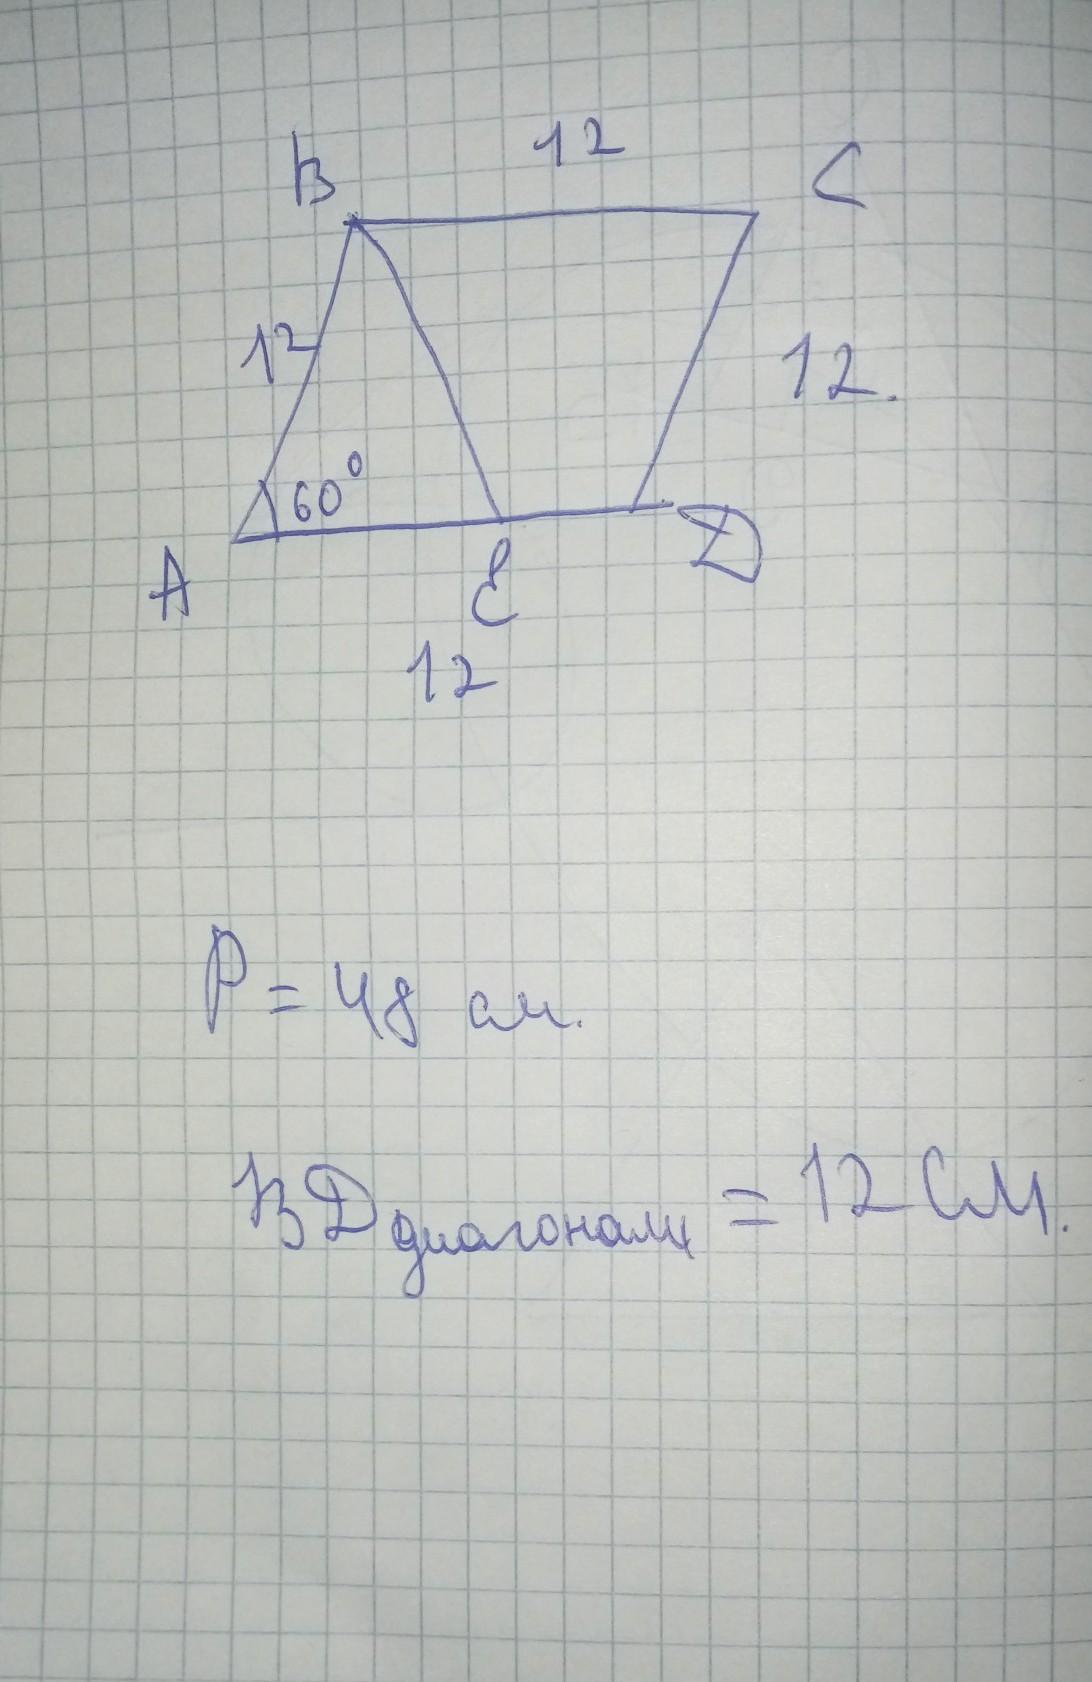 12
B
C
12
12.
60°
A
E
D
12
P = 48 см.
ВД диагонали = 12 см.